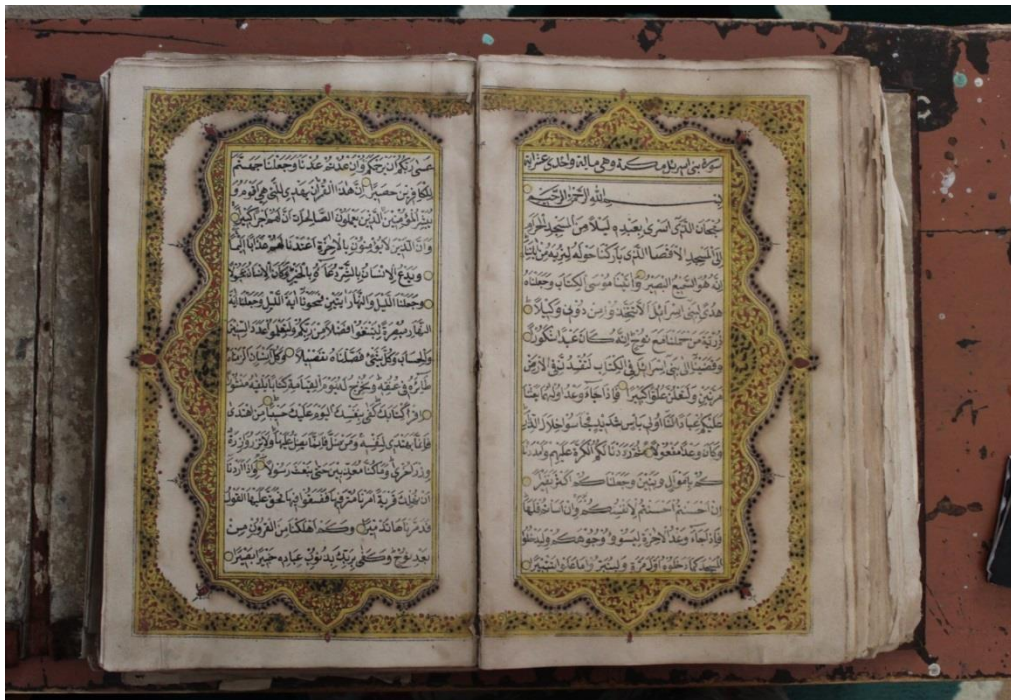 سورة بني اسريل مكية وهي مائة واحدى عشر اية
بسم الله الرحمن الرحيم
سبحان الذي اسرى بعبده ليلا من المسجد الحرام
الى المسجد الاقصا الذي باركنا حوله لنريه من اياتنا
انه هو السميع البصير واتينا موسى الكتاب وجعلناه
هدى لبني اسرائل الا تتخذوا من دوني وكيلا
ذرية من حملنا مع نوح انه كان عبدا شكورا
وقضينا الى بني اسرائل في الكتاب لتفسدن في الارض
مرتين ولتعلن علوا كبيرا فاذا جاء وعد اوليهما بعثنا
عليكم عبادا لنا اولي باس شديد فجاسوا خلال الديار
وكان وعدا مفعولا ثم رددنا لكم الكرة عليهم وامددنا
كم باموال وبنين وجعلناكم اكثر نفيرا
ان احسنتم احسنتم لانفسكم وان اساتم فلها
فاذا جاء وعد الاخرة ليسوؤا وجوهكم وليدخلوا
المسجد كما دخلوه اول مرة وليتبروا ما علوا تتبيرا
عسى ربكم ان يرحمكم وان عدتم عدنا وجعلنا جهنم
للكافرين حصيرا ان هذا القران يهدي للتي هي اقوم و
يبشر المؤمنين الذين يعملون الصالحات ان لهم اجرا كبيرا
وان الذين لا يؤمنون بالاخرة اعتدنا لهم عذابا اليما
ويدع الانسان بالشر دعاءه بالخير وكان الانسان عجولا
وجعلنا الليل والنهار ايتين فمحونا اية الليل وجعلنا اية
النهار مبصرة لتبتغوا فضلا من ربكم ولتعلموا عدد السنين
والحساب وكل شيء فصلناه تفصيلا وكل انسان الزمناه
طائره في عنقه ونخرج له يوم القيامة كتابا يلقيه منشورا
اقرا كتابك كفى بنفسك اليوم عليك حسيبا من اهتدى
فانما يهتدي لنفسه ومن ضل فانما يضل عليها ولا تزر وازرة
وزر اخرى وما كنا معذبين حتى نبعث رسولا واذا اردنا
ان نهلك قرية امرنا مترفيها ففسقوا فيها فحق عليها القول
فدمرناها تدميرا وكم اهلكنا من القرون من
بعد نوح وكفى بربك بذنوب عباده خبيرا بصيرا